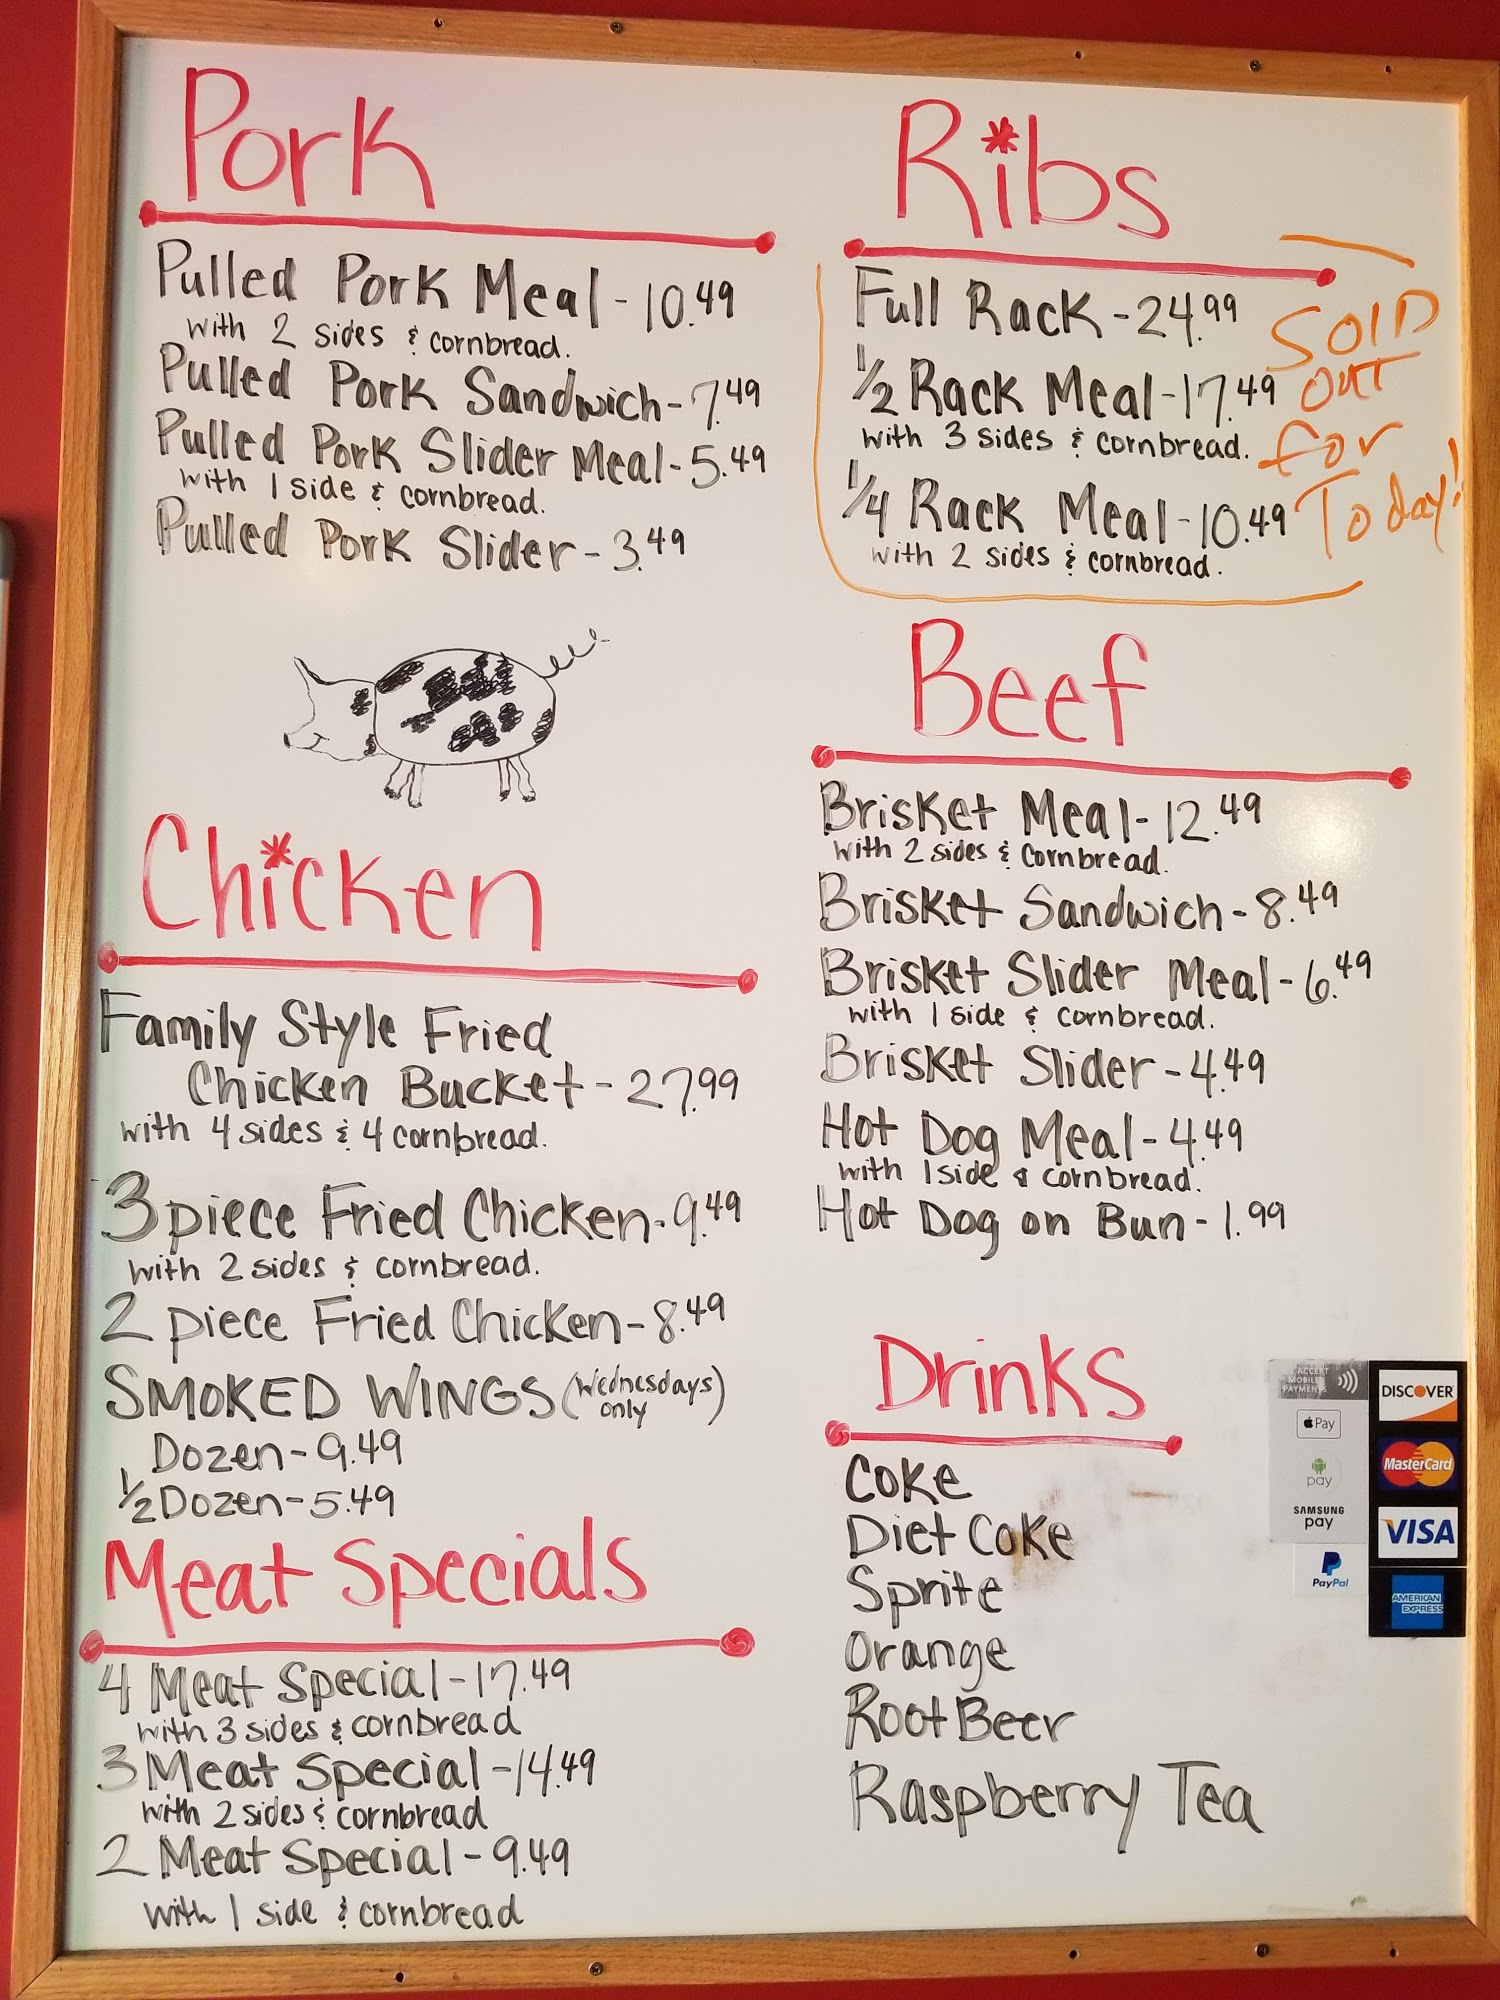 Pork
Pulled Pork Meal - 10.49
with 2 sides & cornbread.
Pulled Pork Sandwich - 7.49
Pulled Pork Slider Meal - 5.49
with 1 side & cornbread.
Pulled Pork Slider - 3.49
Chicken
Family Style Fried
Chicken Bucket - 27.99
with 4 sides & 4 cornbread.
3 piece Fried Chicken - 9.49
with 2 sides & cornbread.
2 piece Fried Chicken - 8.49
SMOKED WINGS (Wednesdays only)
Dozen - 9.49
1/2 Dozen - 5.49
Meat Specials
4 Meat Special - 17.49
with 3 sides & cornbread
3 Meat Special - 14.49
with 2 sides & cornbread
2 Meat Special - 9.49
with 1 side & cornbread
Ribs
Full Rack - 24.99
1/2 Rack Meal - 17.49
with 3 sides & cornbread.
1/4 Rack Meal - 10.49
with 2 sides & cornbread.
SOlD
OuT
for
Today!
Beef
Brisket Meal - 12.49
with 2 sides & cornbread.
Brisket Sandwich - 8.49
Brisket Slider Meal - 6.49
with 1 side & cornbread.
Brisket Slider - 4.49
Hot Dog Meal - 4.49
with 1 side & cornbread.
Hot Dog on Bun - 1.99
Drinks
Coke
Diet Coke
Sprite
Orange
Root Beer
Raspberry Tea
ACCEPT
MOBILE
PAYMENTS
Pay
pay
SAMSUNG
pay
PayPal
DISCOVER
MasterCard
VISA
AMERICAN
EXPRESS